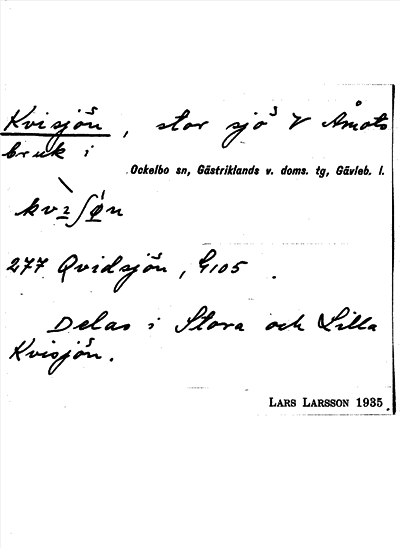 Kvisjön, stor sjö V Åmots
bruk i
Ockelbo sn, Gästriklands v. doms. tg, Gävleb. l.
277 Qvidsjön, G105.
Delas i Stora och Lilla
Kvisjön.
LARS LARSSON 1935.